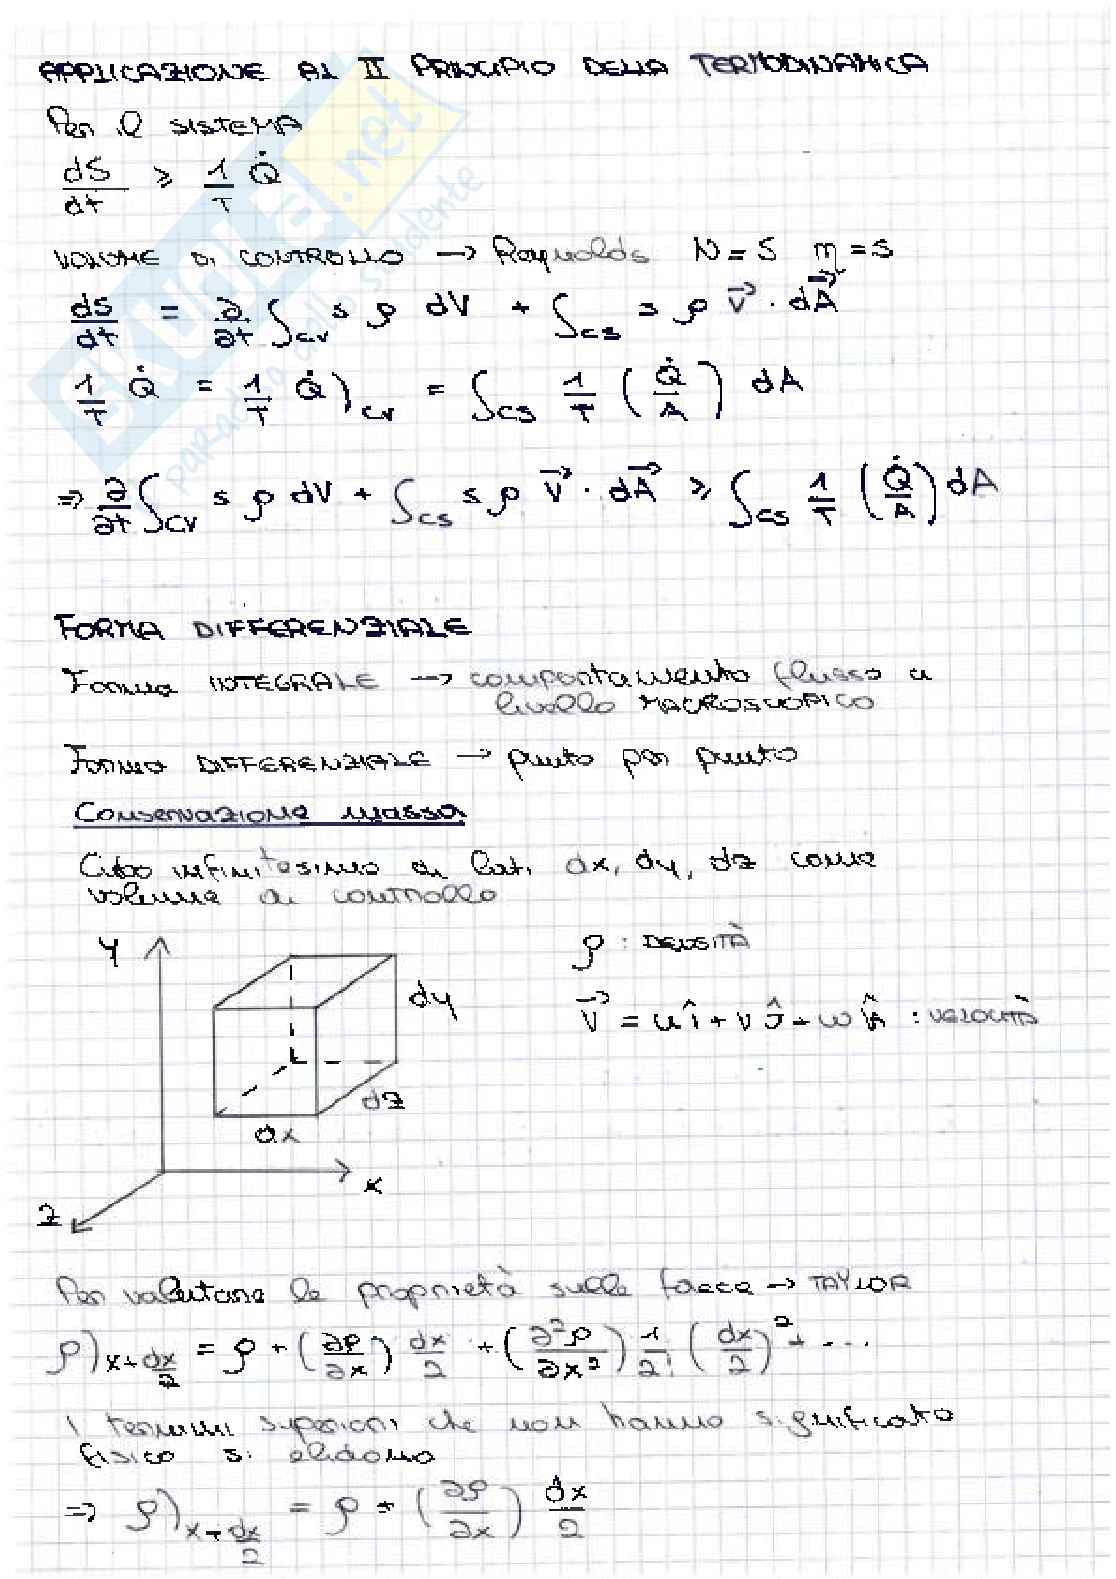 APPLICAZIONE AL II PRINCIPIO DELLA TERMODINAMICA
Per il SISTEMA
dS/dt ≥ 1/T Q̇
VOLUME DI CONTROLLO → Raynolds N = S η = s
dS/dt = ∂/∂t ∫cv s ρ dV + ∫cs s ρ V⃗ · dA⃗
1/T Q̇ = 1/T Q̇)cv = ∫cs 1/T (Q̇/A) dA
⇒ ∂/∂t ∫cv s ρ dV + ∫cs s ρ V⃗ · dA⃗ ≥ ∫cs 1/T (Q̇/A) dA
FORMA DIFFERENZIALE
Forma INTEGRALE → comportamento flusso a
livello MACROSCOPICO
Forma DIFFERENZIALE → punto per punto
Conservazione massa
Cubo infinitesimo di lati dx, dy, dz come
volume di controllo
Y
ρ : DENSITÀ
dy
V⃗ = u î + v ĵ + w k̂ : VELOCITÀ
dz
dx
x
z
Per valutare le proprietà sulle facce → TAYLOR
ρ)x+dx/2 = ρ + (∂ρ/∂x) dx/2 + (∂²ρ/∂x²) 1/2! (dx/2)² + ...
I termini superiori che non hanno significato
fisico si elidono
⇒ ρ)x+dx/2 = ρ + (∂ρ/∂x) dx/2
skuola.net
paradiso dello studente